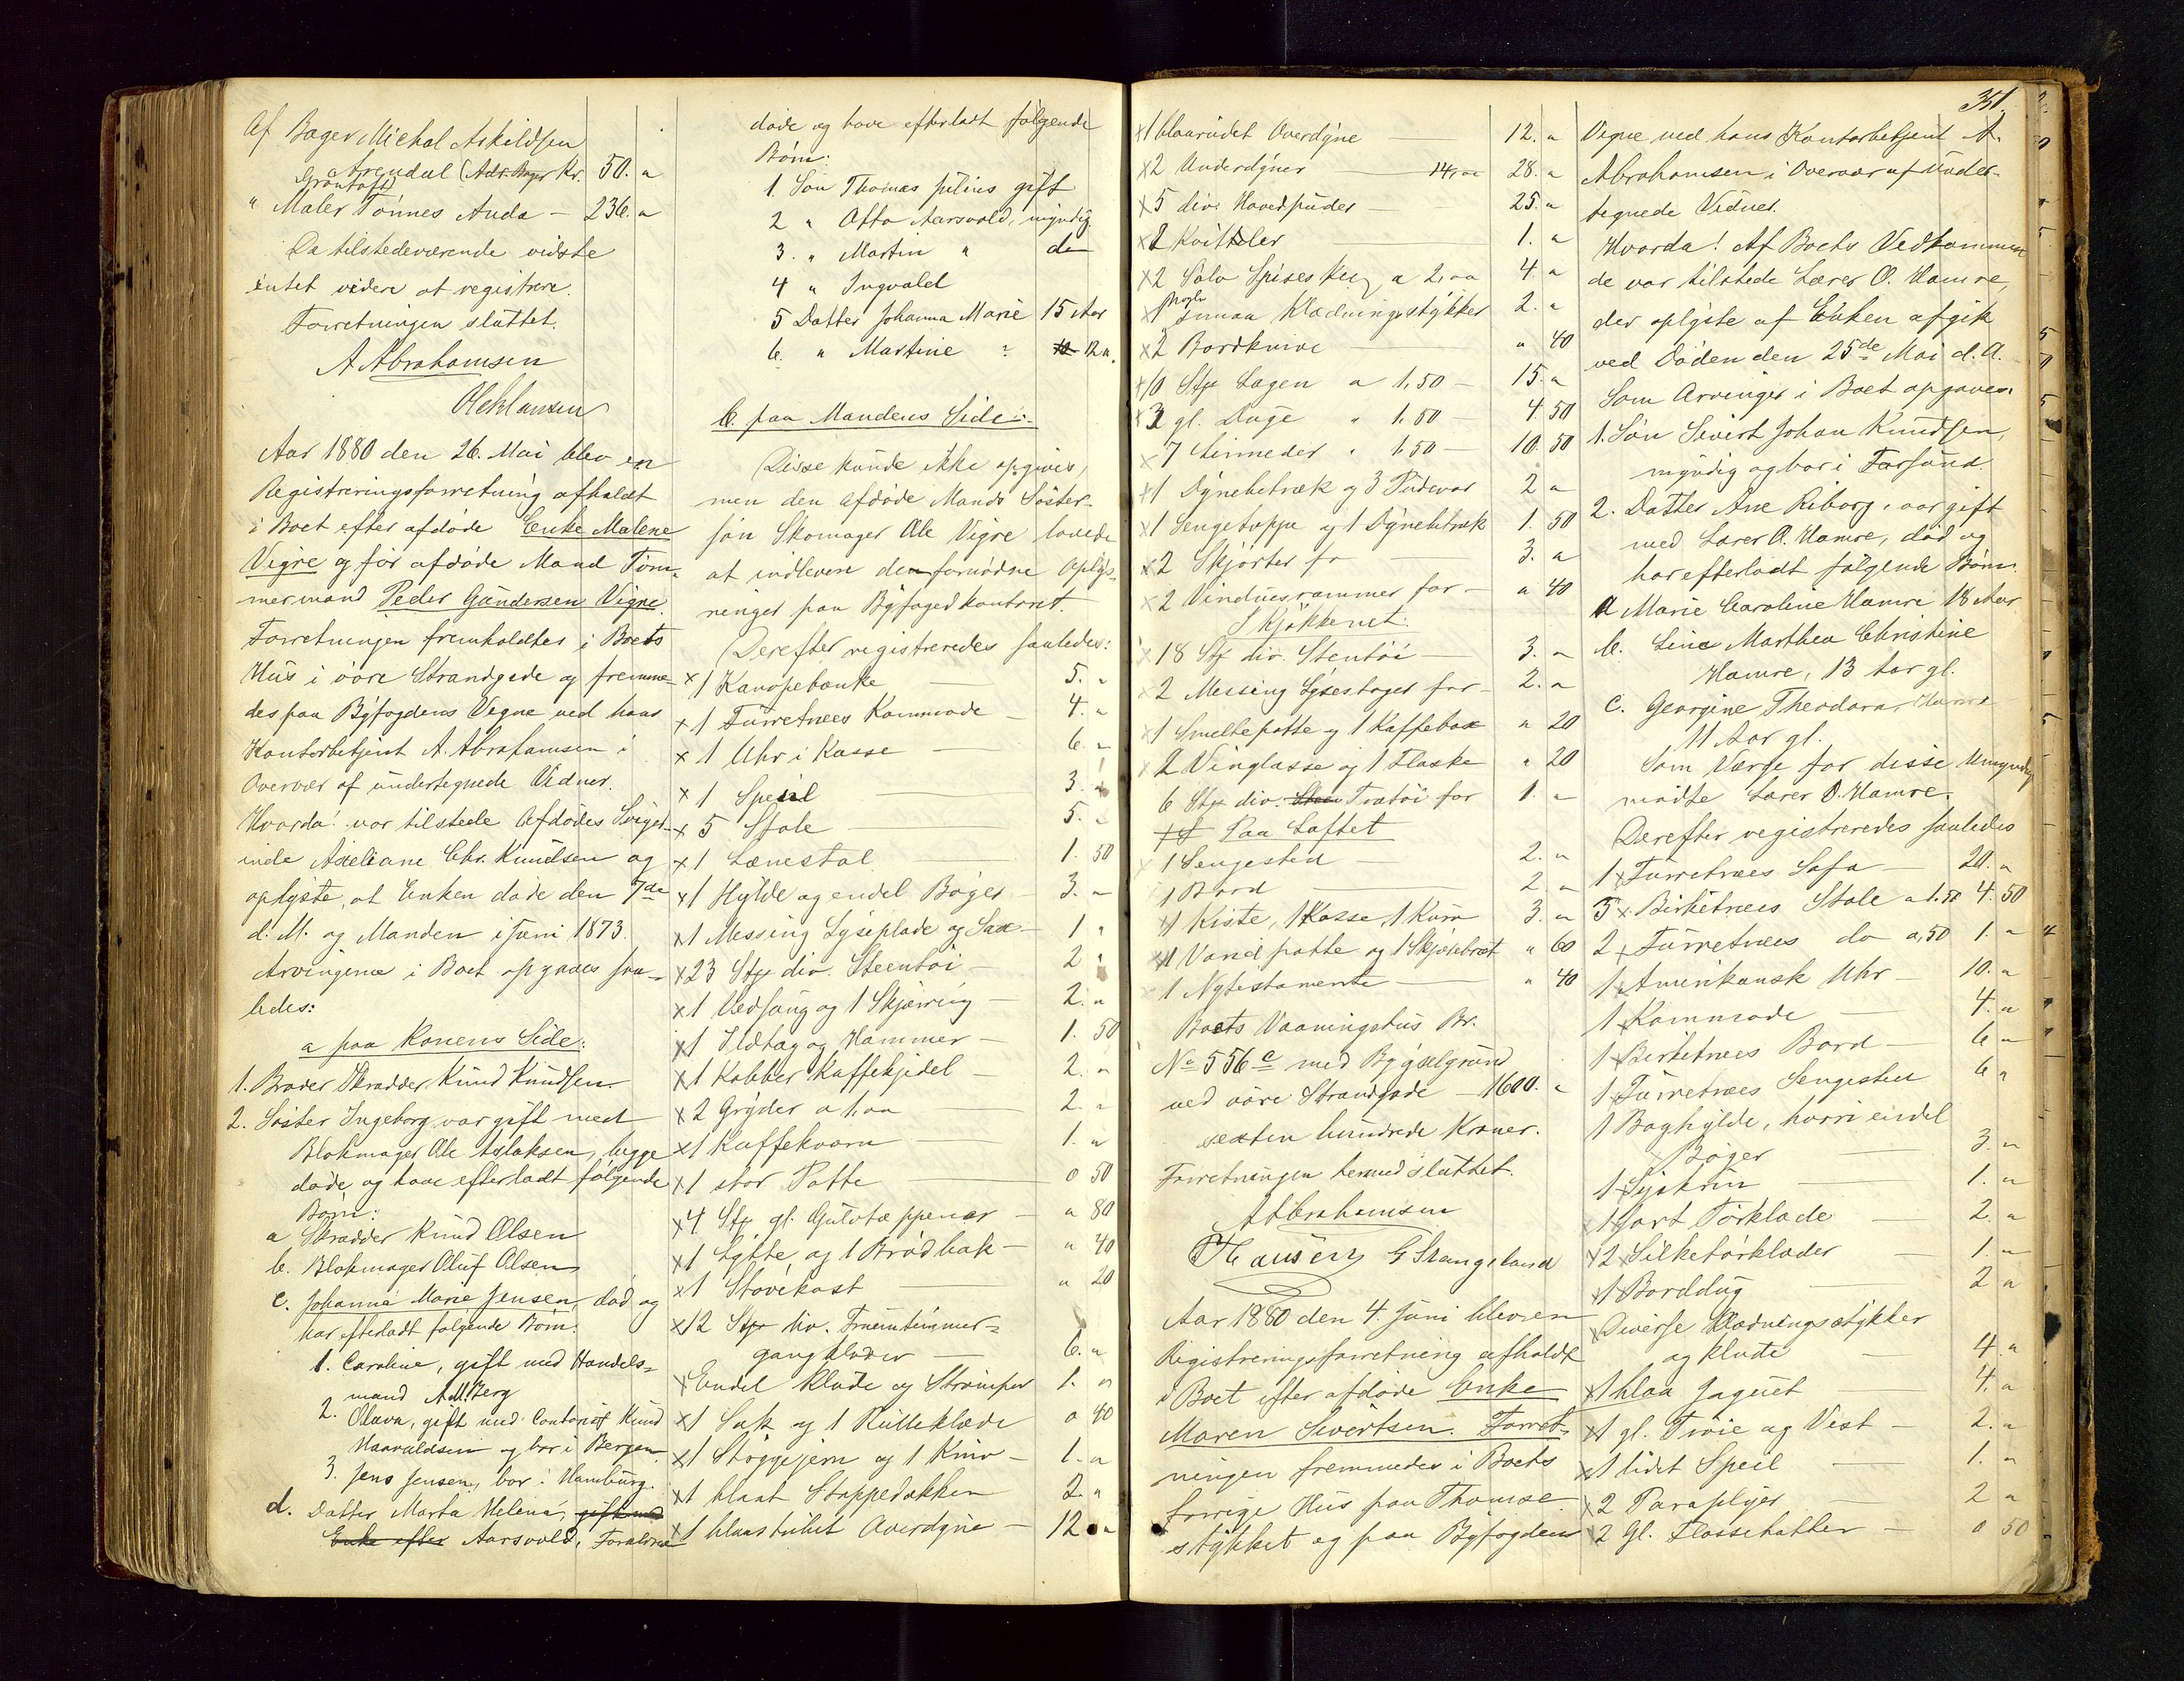 Af Bager Michal Askildsen
Arendal (Adr. Bager Kr. 50. "
Grøntoft)
" Maler Tønnes Auda – 236. "
Da tilstedeværende vidste
intet videre at registrere.
Forretningen sluttet.
A Abrahamsen
Ole Hansen
Aar 1880 den 26. Mai blev en
Registreringsforretning afholdt
i Boet efter afdøde Enke Malene
Vigre og før afdøde Mand Tøm-
mermand Peder Gundersen Vigre.
Forretningen fremholdtes i Boets
Hus i øvre Strandgade og fremme-
des paa Byfogdens Vegne ved hans
Kontorbetjent A. Abrahamsen i
Overvær af undertegnede Vidner.
Hvorda! var tilstede Afdødes Sviger-
inde Axeliane Chr. Knudsen og
oplyste, at Enken døde den 7de
d. M. og Manden i Juni 1873.
Arvingerne i Boet opgaves saa-
ledes:
a paa Konens Side:
1. Broder Skrædder Knud Knudsen.
2. Søster Ingeborg var gift med
Blokmager Ole Aslaksen, begge
døde og have efterladt følgende
Børn:
a Skrædder Knud Olsen
b. Blokmager Oluf Olsen
c. Johanne Marie Jensen, død og
har efterladt følgende Børn:
1. Caroline, gift med Handels-
mand A.M. Berg
2. Olava, gift med Contorist Knud
Haavaldsen og bor i Bergen.
3. Jens Jensen, bor i Hamburg.
d. Datter Marta Helena, gift med
Enke efter Aarsvold, Forældrene
døde og have efterladt følgende
Børn:
1. Søn Thomas Julius gift
2 " Otto Aarsvold, myndig
3. " Martin " do
4 " Ingvald
5 Datter Johanna Marie 15 Aar
6. " Martine " 12 ".
b. paa Mandens Side:
Disse kunde ikke opgives,
men den afdøde Mands Søster-
søn Skomager Ole Vigre lovede
at indlevere de fornødne Oplys-
ninger paa Byfogedkontoret.
Derefter registreredes saaledes:
x 1 Kanapebænke – 5. "
x 1 Furretræes Kommode – 4. "
x 1 Uhr i Kasse – 6. "
x 1 Speil – 3. "
x 5 Stole – 5. "
x 1 Lænestol 1. 50
x 1 Hylde og endel Bøger – 3. "
x 1 Messing Lyseplade og Sax – 1 "
x 23 Stp div. Steentøi – 2 "
x 1 Vedsaug og 1 Skjæreing – 2. "
x 1 Ildtag og Hammer – 1. 50
x 1 Kobber Kaffekjedel – 2. "
x 2 Gryder a 1,00 2. "
x 1 Kaffekværn – 1. "
x 1 stor Potte – 0 50
x 4 Stp gl. Gulvtæppener – " 80
x 1 Løgte og 1 Brødbak – " 40
x 1 Støvekost – " 20
x 12 Stp div. Fruentimmer-
gangklæder – 6. "
x Endel Klude og Strømper 1. "
x 1 Sæk og 1 Rulleklæde 0 40
x 1 Strygejern og 1 Kniv – 1. "
x 1 blaat Stoppedækken 2. "
x 1 blaastribet Overdyne – 12. "
x 1 blaarudet Overdyne – 12. "
x 2 Underdyner – 14,00 28. "
x 5 div. Hovedpuder – 25. "
x 2 Kvittler 1. "
x 2 Sølv Spiseskeer a 2,00 4 "
x nogle smaa Klædningsstykker 2. "
x 2 Bordknive " 40
x 10 Stp Lagen a 1,50 – 15. "
x 3 gl. Duge " 1,50 – 4. 50
x 7 Linneder " 1,50 – 10. 50
x 1 Dynebetræk og 3 Pudevar 2 "
x 1 Sengetæppe og 1 Dynebetræk 1. 50
x 2 Skjørter for – 3. "
x 2 Vinduesrammer for – " 40
I Kjøkkenet:
x 18 Stp div. Stentøi – 3. "
x 2 Messing Lysestager for – 2. "
x 1 Smeltepotte og 1 Kaffebox " 20
x 2 Vinglasse og 1 Flaske " 20
6 Stp div. Trætøi for 1. "
Paa Loftet
x 1 Sengested – 2. "
1 Bord – 2 "
x 1 Kiste, 1 Kasse, 1 Kurv 3. "
x 1 Vandpotte og 1 Skjærebræt " 60
1 Nytestamente – " 40
Boets Vaaningshus Br.
No 556 c med Bygselgrund
ved øvre Strandgade – 1600. "
sexten hundrede Kroner.
Forretningen hermed sluttet.
A Abrahamsen
T Hansen G Stangeland
Aar 1880 den 4. Juni blev en
Registreringsforretning afholdt
i Boet efter afdøde Enke
Maren Sivertsen. Forret-
ningen fremmedes i Boets
forrige Hus paa Thomse-
stykket og paa Byfogdens
351.
Vegne ved hans Kontorbetjent A.
Abrahamsen i Overvær af under-
tegnede Vidner.
Hvorda! Af Boets Vedkommen
de var tilstede Lærer O. Hamre,
der oplyste at Enken afgik
ved Døden den 25de Mai d. A.
Som Arvinger i Boet opgaves:
1. Søn Sivert Johan Knudsen,
myndig og bor i Farsund.
2. Datter Ane Riborg, var gift
med Lærer O. Hamre, død og
har efterladt følgende Børn:
a Marie Caroline Hamre 18 Aar
b. Line Marthea Christine
Hamre, 13 Aar gl.
c. Georgine Theodora Hamre
11 Aar gl.
Som Værge for disse Umyndig
mødte Lærer O. Hamre.
Derefter registreredes saaledes
1 x Furretræes Sofa – 20. "
3 x Birketræes Stole a 1.50 4. 50
2 x Furretræes do a,50 1. "
1 x Amerikansk Uhr – 10. "
1 x Kommode – 4. "
1 x Birketræes Bord – 6 "
1 x Furretræes Sengested 6 "
1 Boghylde, hvori endel
Bøger – 3 "
1 x Syskrin – 1. "
x 1 sort Tørklæde – 2. "
x 2 Silketørklæder – 1. "
x 1 Borddug – 2 "
x Diverse Klædningsstykker
og klude – 4. "
x 1 blaa Jaquet 4. "
x 1 gl. Trøie og Vest – 2. "
x 1 lidet Speil – 1. "
x 2 Paraplyer – 2 "
x 2 Gl. Flossehatter – 0 50